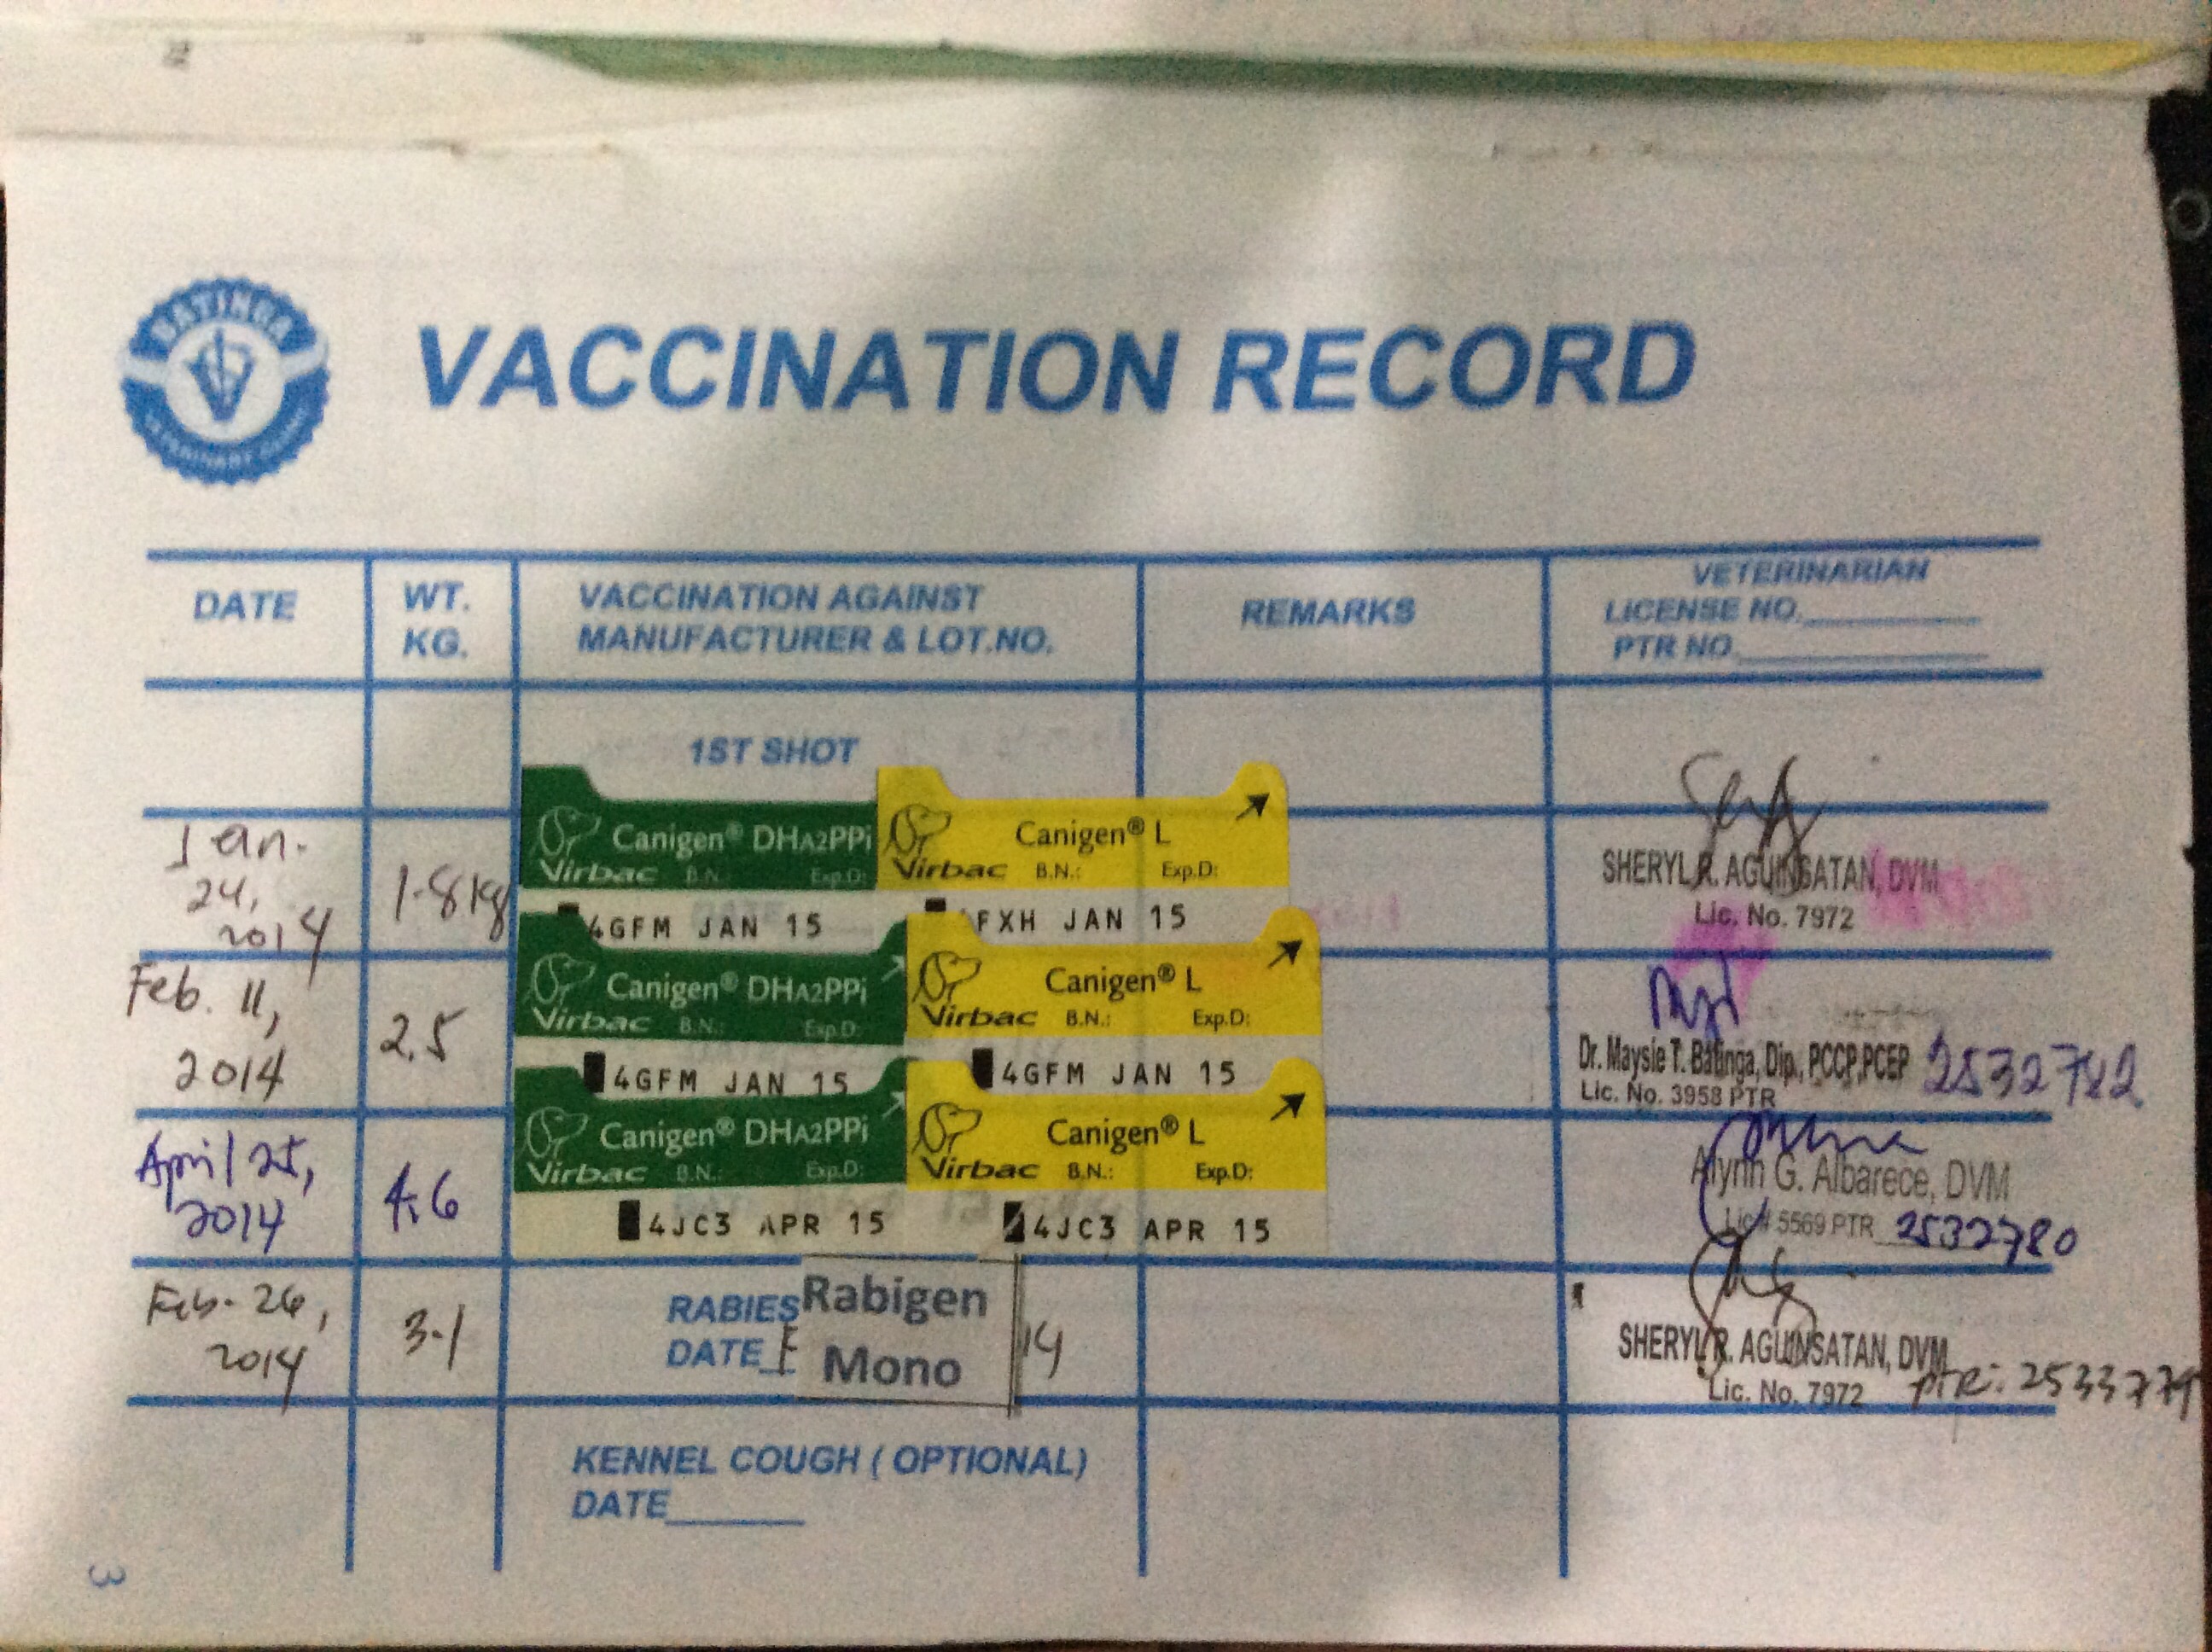 BATINGA
VETERINARY CLINIC
VACCINATION RECORD
DATE
WT.
KG.
VACCINATION AGAINST
MANUFACTURER & LOT.NO.
REMARKS
VETERINARIAN
LICENSE NO.
PTR NO.
1ST SHOT
Jan.
24,
2014
1.8kg
Canigen® DHA2PPi
Virbac B.N.: Exp.D:
4GFM JAN 15
Canigen® L
Virbac B.N.: Exp.D:
FXH JAN 15
SHERYL R. AGUINSATAN, DVM
Lic. No. 7972
Feb. 11,
2014
2.5
Canigen® DHA2PPi
Virbac B.N.: Exp.D:
4GFM JAN 15
Canigen® L
Virbac B.N.: Exp.D:
4GFM JAN 15
Dr. Maysie T. Batinga, Dip., PCCP,PCEP
Lic. No. 3958 PTR 2532782
April 25,
2014
4.6
Canigen® DHA2PPi
Virbac B.N.: Exp.D:
4JC3 APR 15
Canigen® L
Virbac B.N.: Exp.D:
4JC3 APR 15
Alynn G. Albarece, DVM
Lic# 5569 PTR 2532780
Feb. 26,
2014
3.1
RABIES
DATE
Rabigen
Mono
14
SHERYL R. AGUINSATAN, DVM
Lic. No. 7972 PTR: 2533779
KENNEL COUGH ( OPTIONAL)
DATE
3